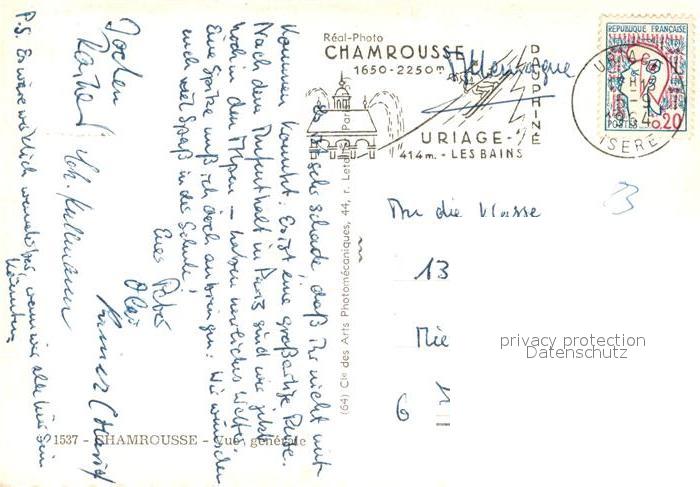 Réal-Photo
CHAMROUSSE
1650-2250m
DAUPHINÉ
URIAGE-
414m. - LES BAINS
Allemagne
REPUBLIQUE FRANÇAISE
POSTES 0.20
ISERE
An die Klasse
13
Mie
6
privacy protection
Datenschutz
(64) Cie des Arts Photomécaniques, 44, r. Letellier Paris
1537 - CHAMROUSSE - Vue générale
es ist sehr schade, daß Ihr nicht mit
kommen konntet. Es ist eine großartige Reise.
Nach dem Aufenthalt in Paris sind wir jetzt
hoch in den Alpen - haben herrliches Wetter.
Eine Spitze muß ich doch anbringen: Wir wünschen
euch viel Spaß in der Schule!
Euer Peter
Olaf
Jochen
P.S. Es wäre wirklich wenn wir alle hier sein
könnten